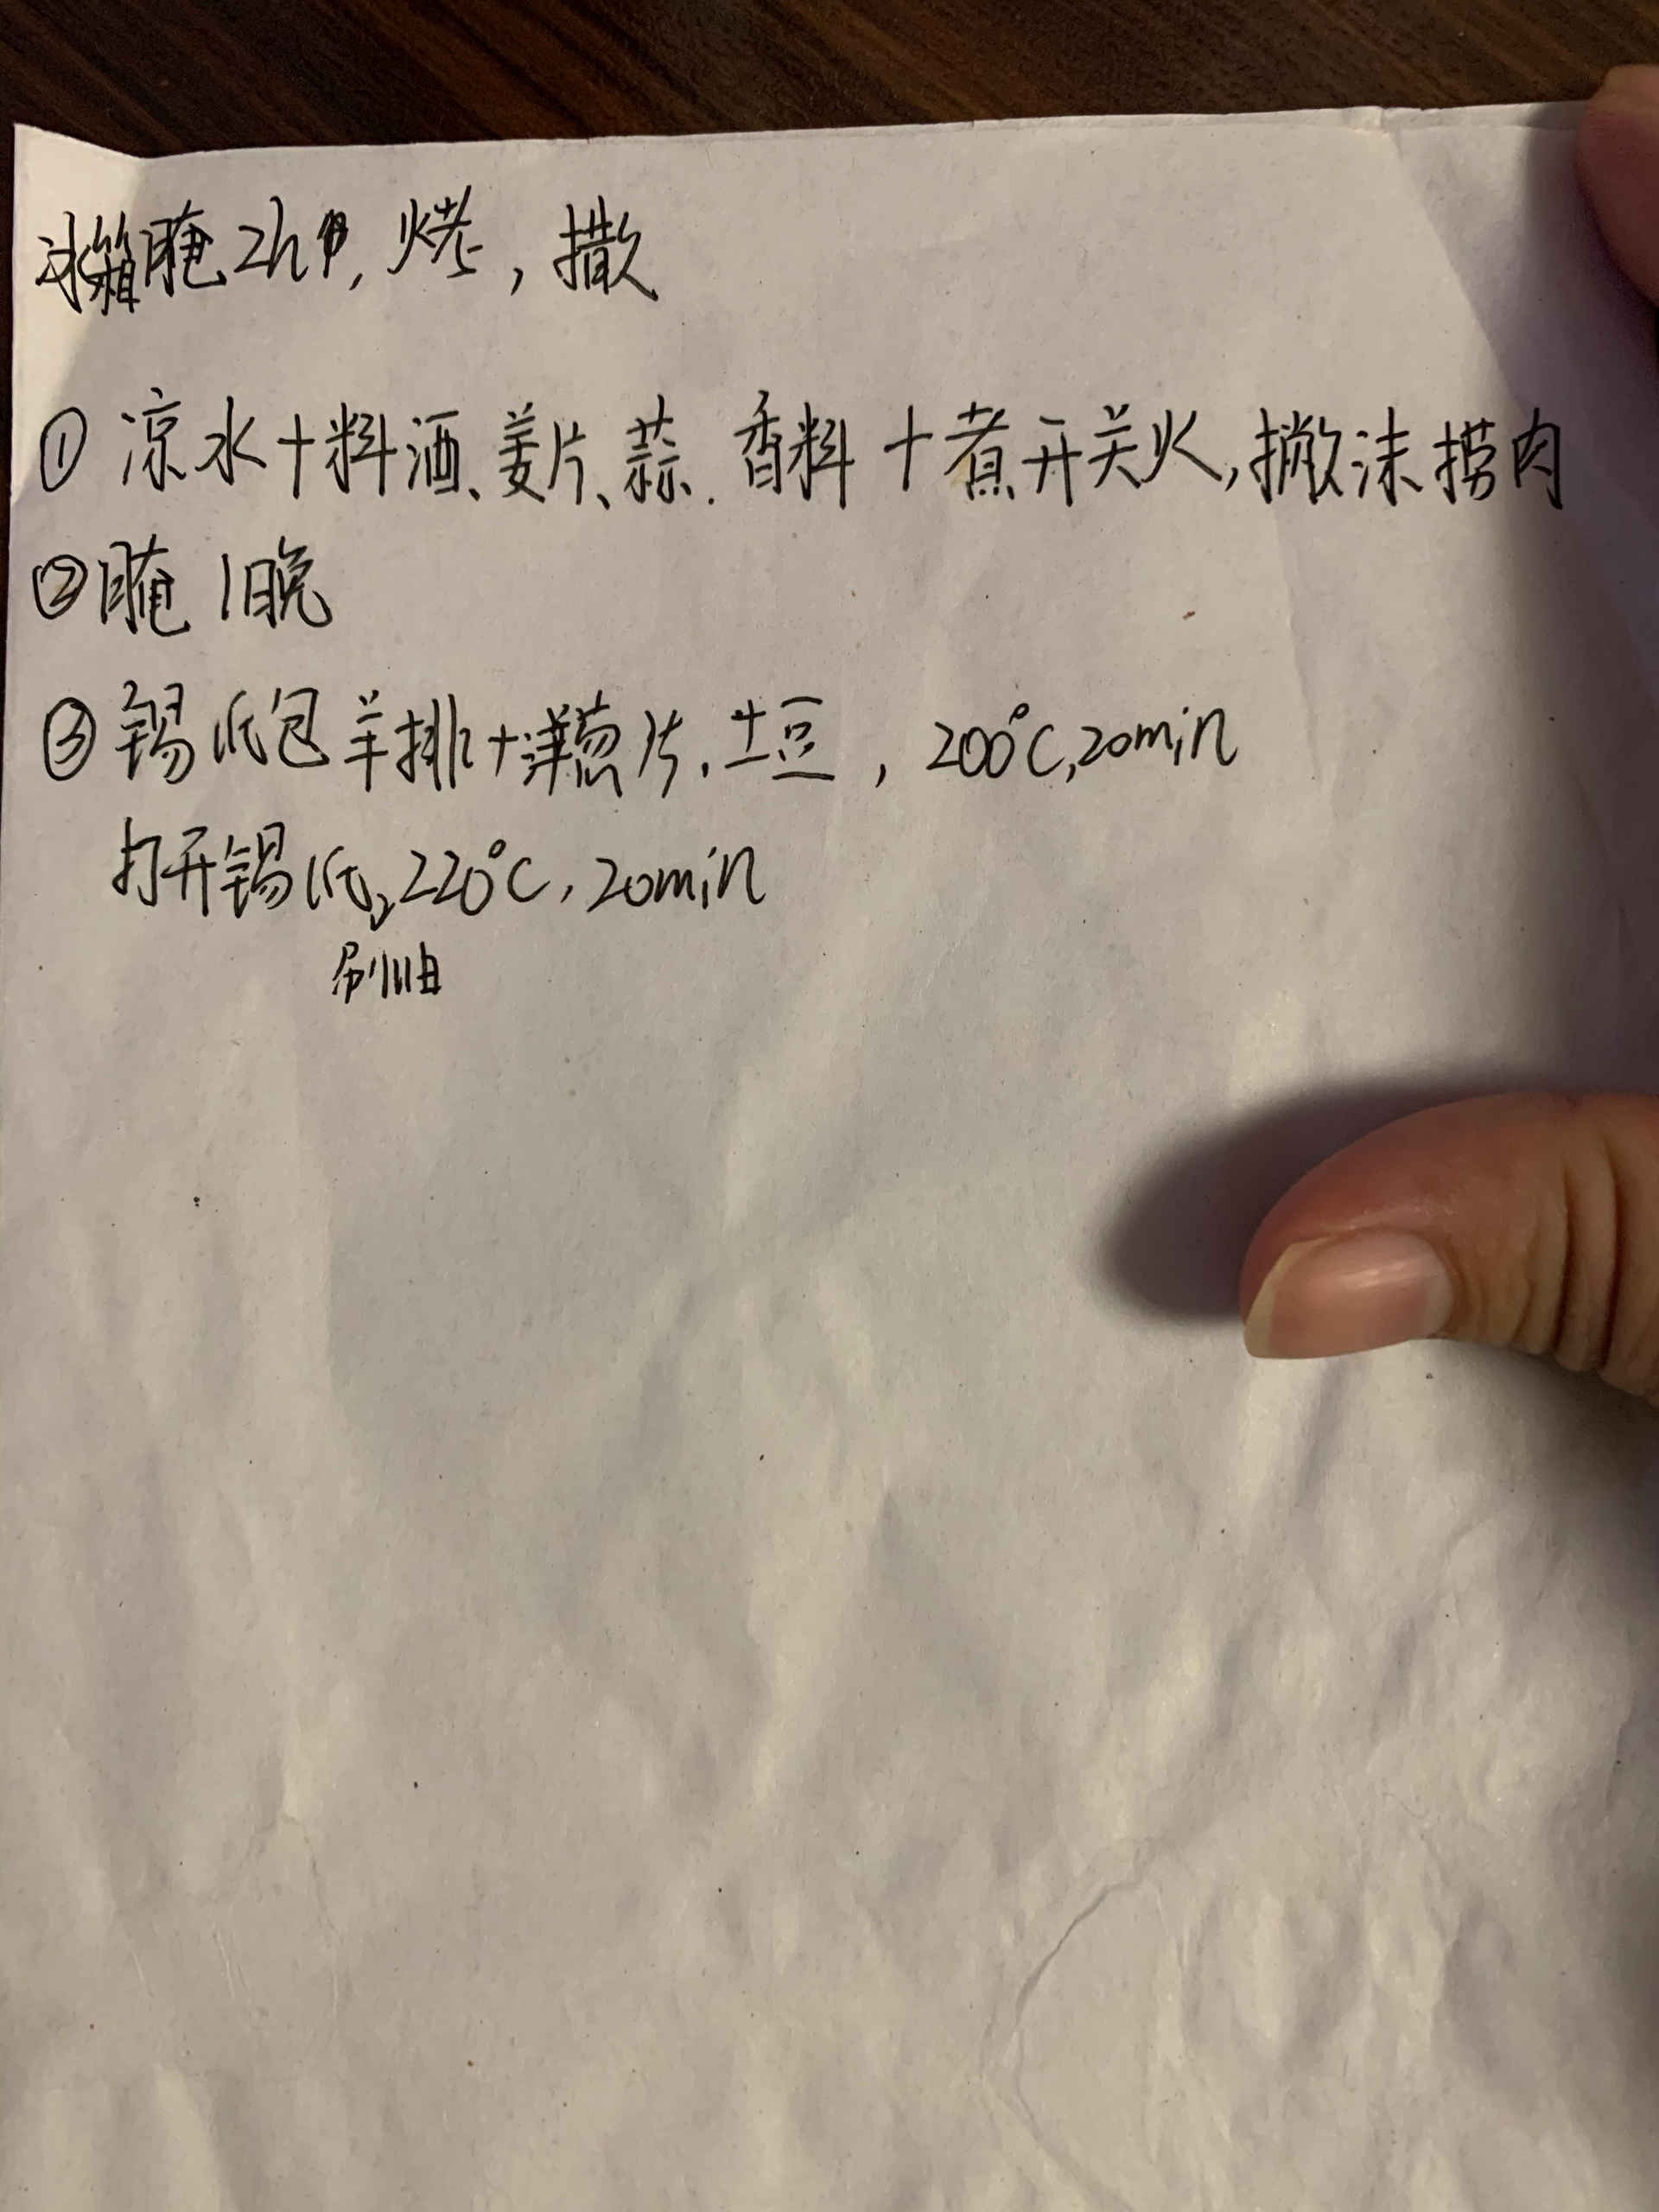 冰箱腌2h, 烤, 撒
① 凉水+料酒、姜片、蒜、香料+煮开关火,撇沫捞肉
② 腌1晚
③ 锡纸包羊排+洋葱片、土豆, 200°C, 20min
打开锡纸, 220°C, 20min
刷油